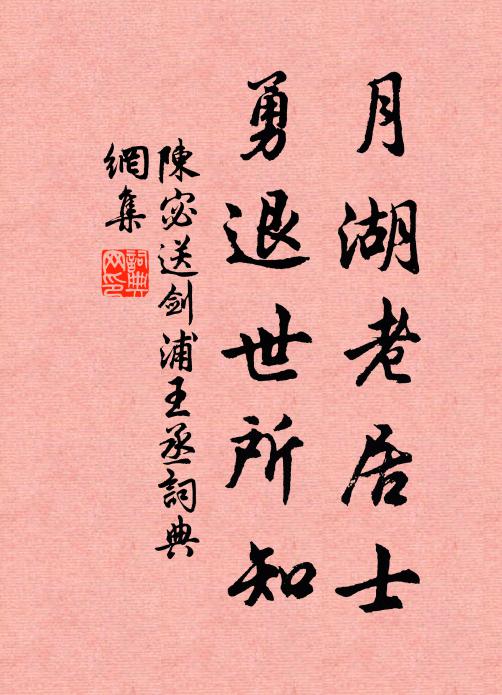 月湖老居士
勇退世所知
陳宓送剑浦王丞詞典
網集
詞典
网印